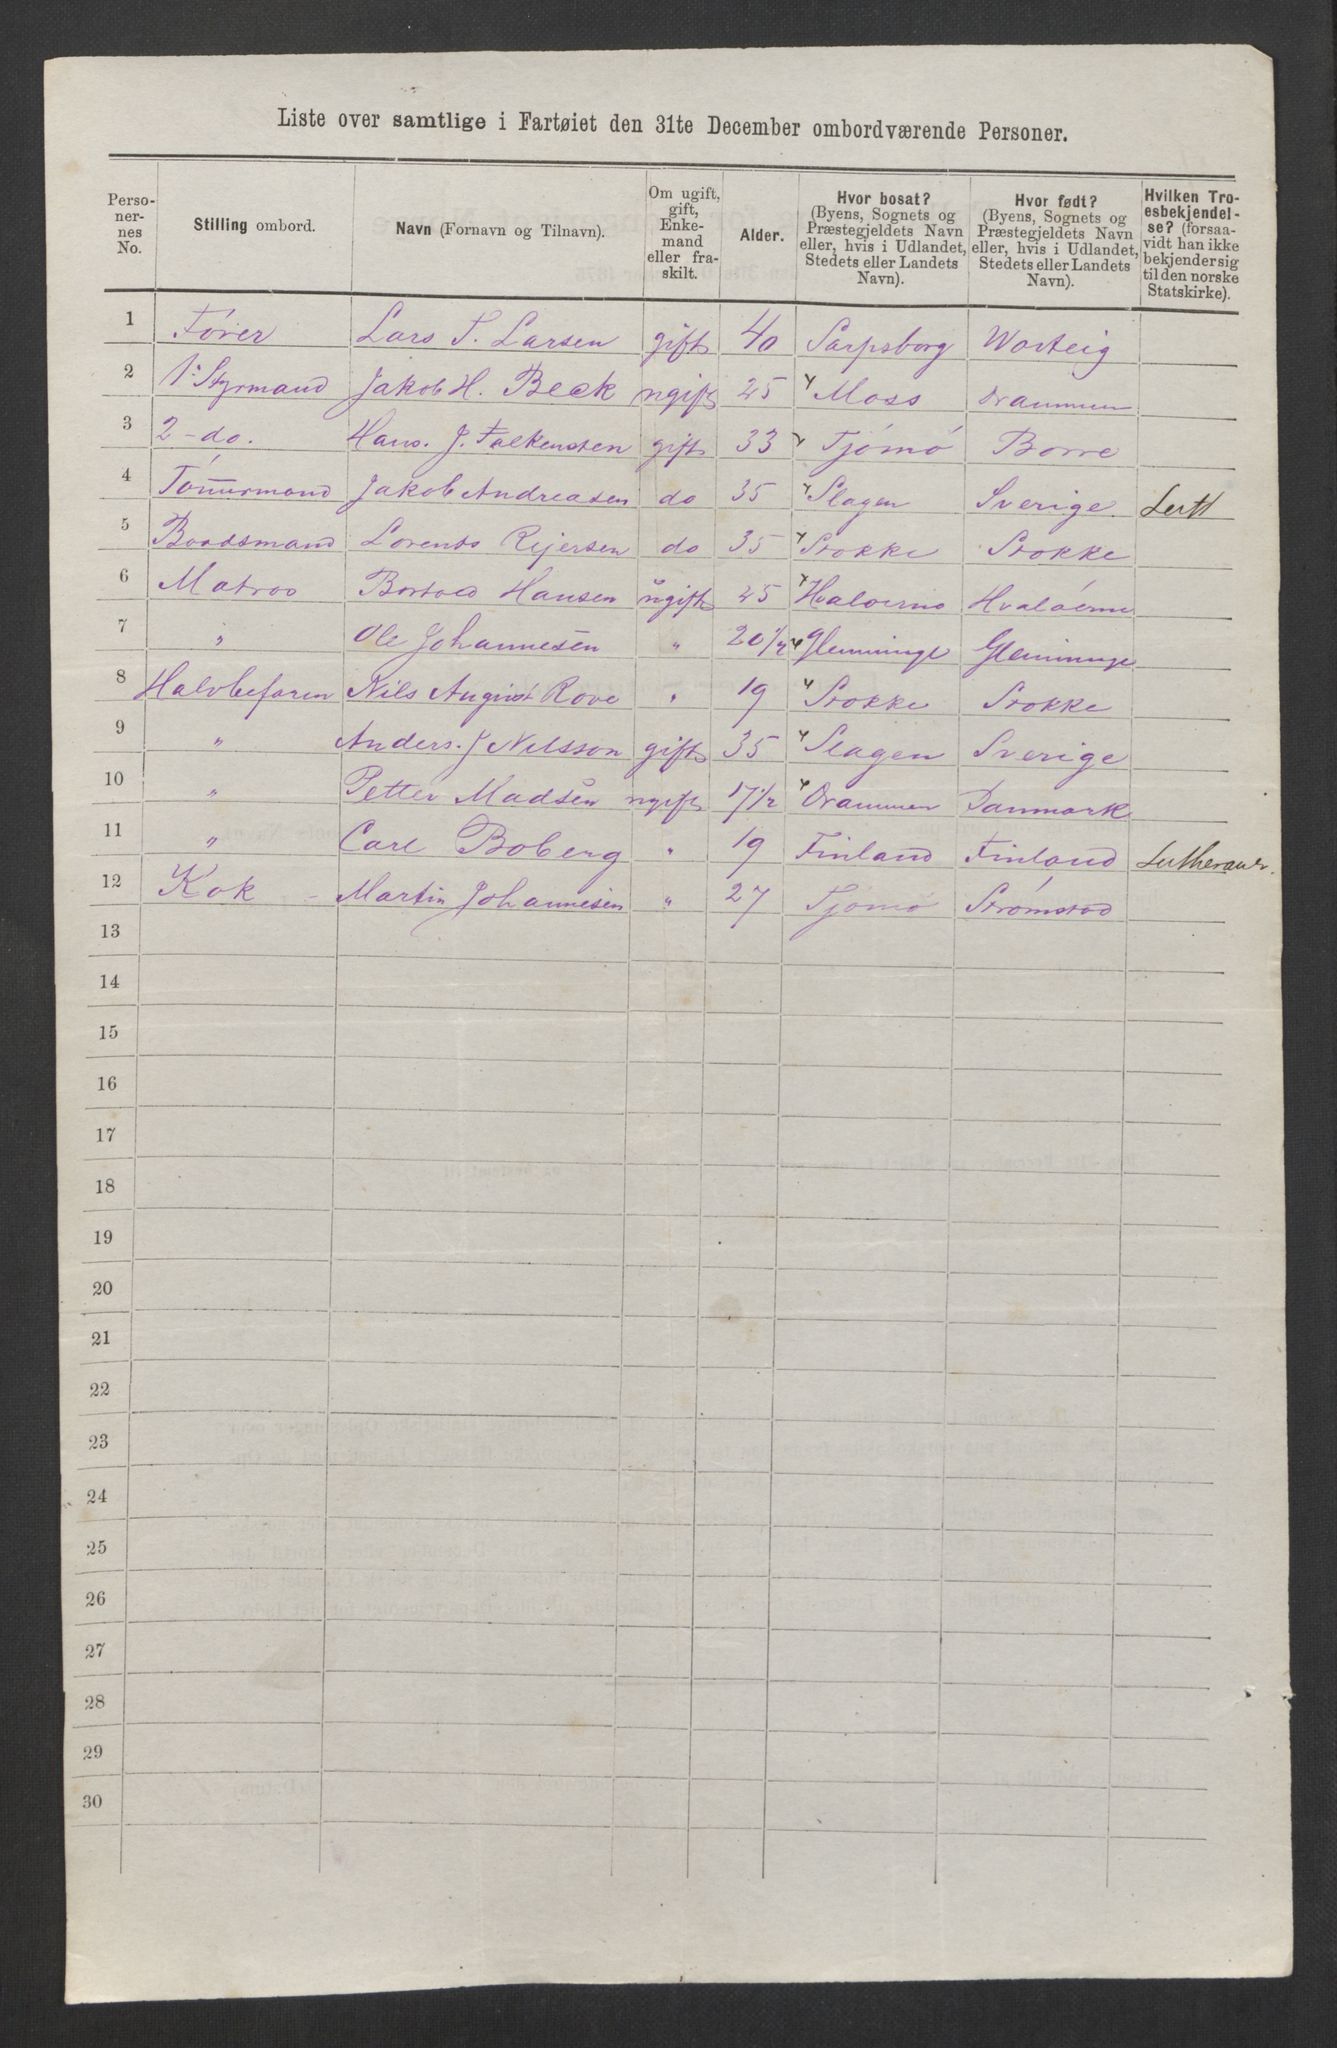 Liste over samtlige i Fartøiet den 31te December ombordværende Personer.
Perso-nernes No. | Stilling ombord. | Navn (Fornavn og Tilnavn). | Om ugift, gift, Enkemand eller fraskilt. | Alder. | Hvor bosat? (Byens, Sognets og Præstegjeldets Navn eller, hvis i Udlandet, Stedets eller Landets Navn). | Hvor født? (Byens, Sognets og Præstegjeldets Navn eller, hvis i Udlandet, Stedets eller Landets Navn). | Hvilken Troesbekjendelse? (forsaavidt han ikke bekjender sig til den norske Statskirke).
1 Fører Lars T. Larsen gift 40 Sarpsborg Worteig
2 1: Styrmand Jakob H. Beck ugift 25 Moss Drammen
3 2 - do. Hans. J. Falkensten gift 33 Tjömö Borre
4 Tömmermand Jakob Andreasen do 35 Slagen Sverige. Luth
5 Baadsmand Lorents Rejersen do 35 Stokke Stokke
6 Matros Bertoed Hansen ugift 25 Hvalöerne Hvalöerne
7 " Ole Johannesen " 20 1/2 Glemminge Glemminge
8 Halvbefaren Nils August Rove " 19 Stokke Stokke
9 " Anders. J Nilsson gift 35 Slagen Sverige
10 " Petter Madsen ugift 17 1/2 Drammen Danmark
11 " Carl Boberg " 19 Finland Finland Lutheraner.
12 Kok - Martin Johannesen " 27 Tjömö Strömstad
13
14
15
16
17
18
19
20
21
22
23
24
25
26
27
28
29
30